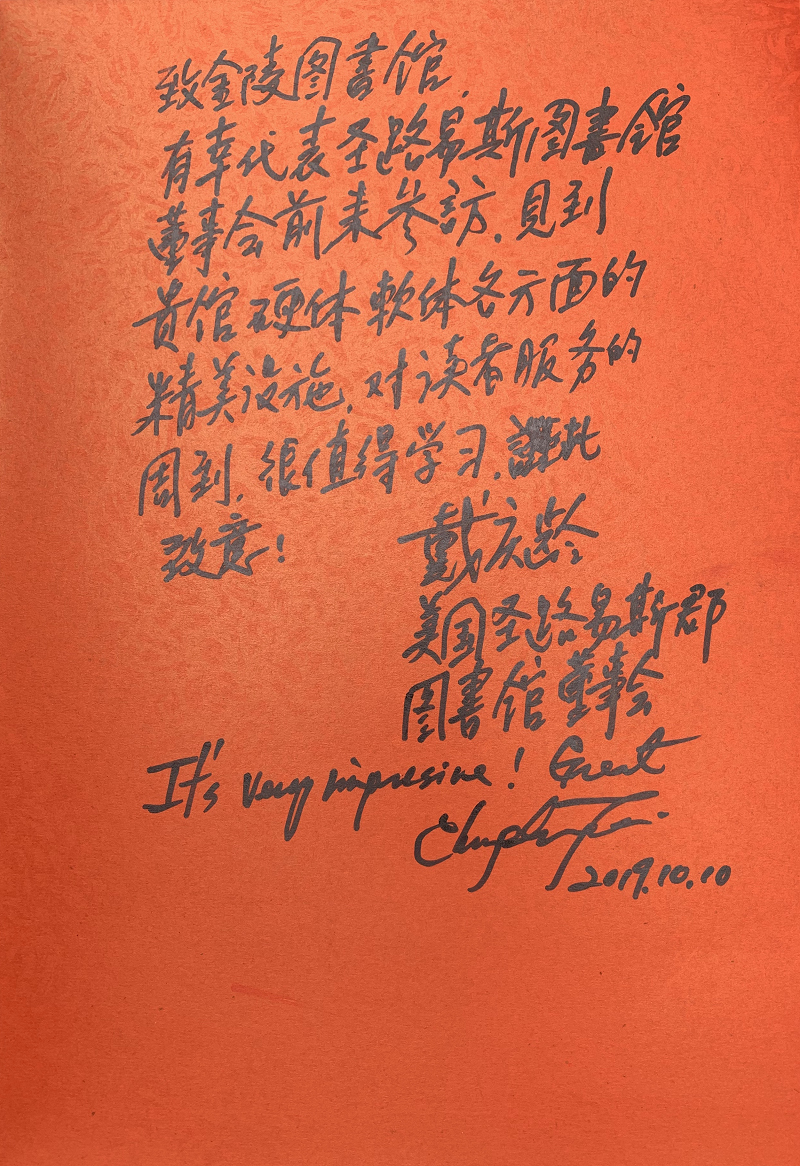 致金陵图書馆.
有幸代表圣路易斯图書館
董事会前来参訪.見到
贵馆硬体軟体各方面的
精美设施,对读者服务的
周到.很值得学习.謹此
致意!
戴庆龄
美国圣路易斯郡
图書馆董事会
It's very impresive! Great
2019.10.10